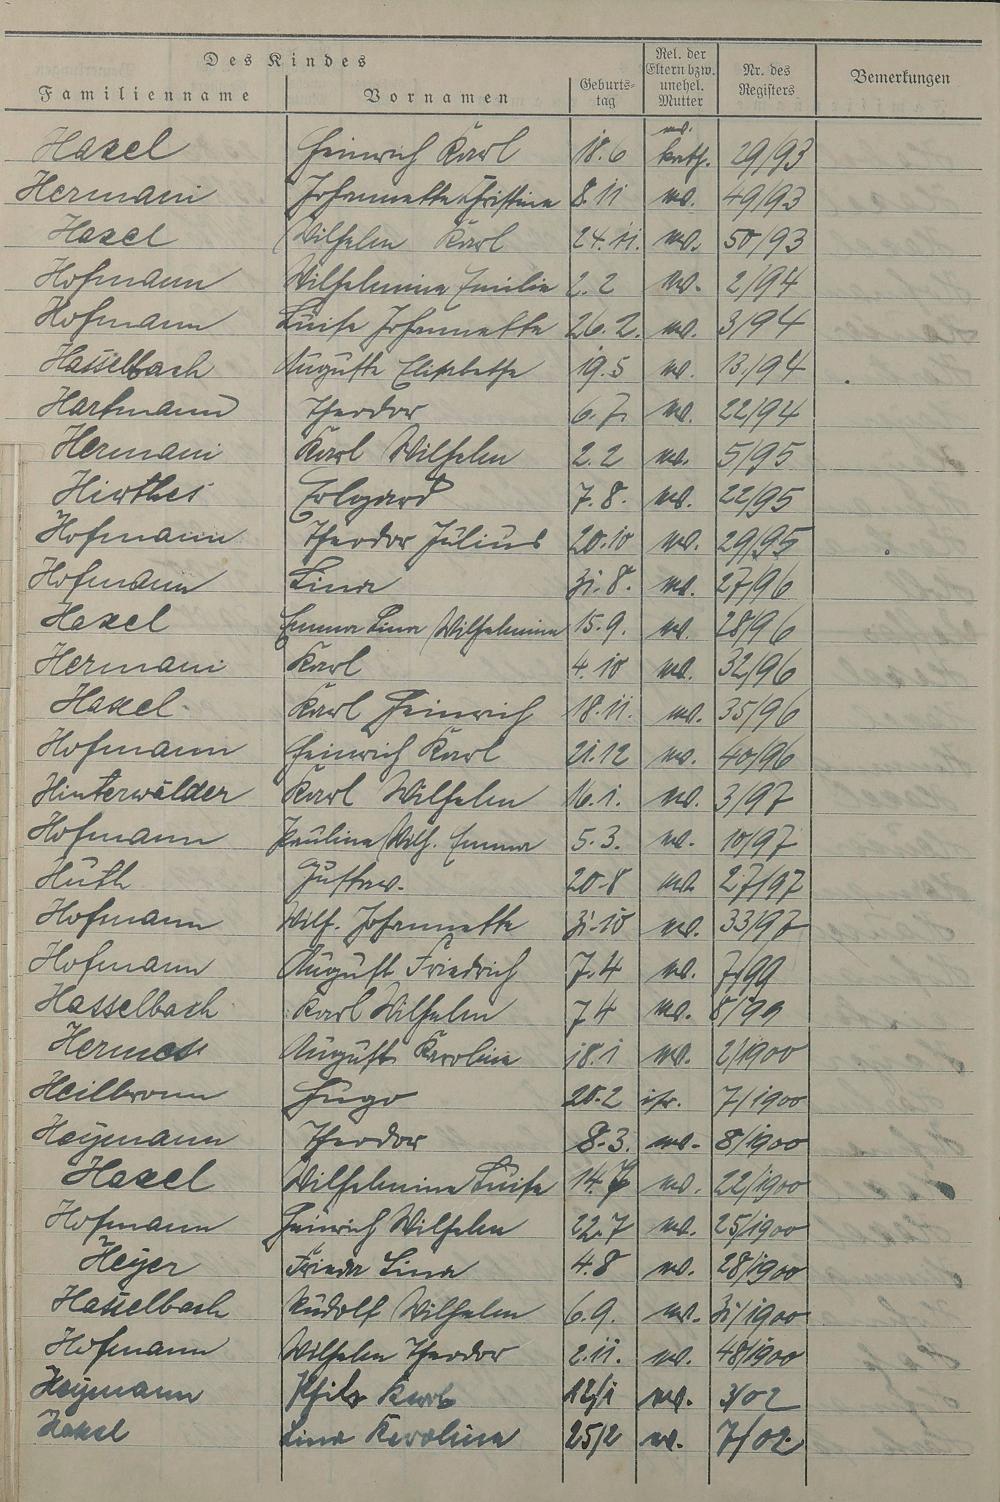 Des Kindes
Familienname Vornamen Geburts-tag Rel. der Eltern bzw. unehel. Mutter Nr. des Registers Bemerkungen
Hasel Heinrich Karl 18.6 kath. 29/93
Hermani Johannette Christine 8.11 ev. 49/93
Hasel Wilhelm Karl 24.11. ev. 50/93
Hofmann Wilhelmine Emilie 2.2 ev. 2/94
Hofmann Luise Johannette 26.2. ev. 3/94
Hasselbach Auguste Elisabethe 19.5 ev. 13/94
Hartmann Theodor 6.7. ev. 22/94
Hermani Karl Wilhelm 2.2 ev. 5/95
Hirthes 7.8. ev. 22/95
Hofmann Theodor Julius 20.10 ev. 29/95
Hofmann Lina 31.8. ev. 27/96
Hasel Emma Lina Wilhelmine 15.9. ev. 28/96
Hermani Karl 4.10 ev. 32/96
Hasel Karl Heinrich 18.11. ev. 35/96
Hofmann Heinrich Karl 21.12 ev. 40/96
Hinterwälder Karl Wilhelm 16.1. ev. 3/97
Hofmann Pauline Wilh. Emma 5.3. ev. 10/97
Huth Gustav. 20.8 ev. 27/97
Hofmann Wilh. Johannette 31.10 ev. 33/97
Hofmann August Friedrich 7.4 ev. 7/99
Hasselbach Karl Wilhelm 7.4 ev. 8/99
Hermes August Karoline 18.1 ev. 2/1900
Heilbronn Hugo 20.2 isr. 7/1900
Heymann Theodor 8.3. ev. 8/1900
Hasel Wilhelmine Luise ev. 22/1900
Hofmann Heinrich Wilhelm 22.7 ev. 25/1900
Heyer Frieda Lina 4.8 ev. 28/1900
Hasselbach Rudolf Wilhelm 6.9. ev. 31/1900
Hofmann Wilhelm Theodor 2.11. ev. 48/1900
Heymann Karl 12/1 ev. 3/02
Hasel Lina Karoline 25/2 ev. 7/02